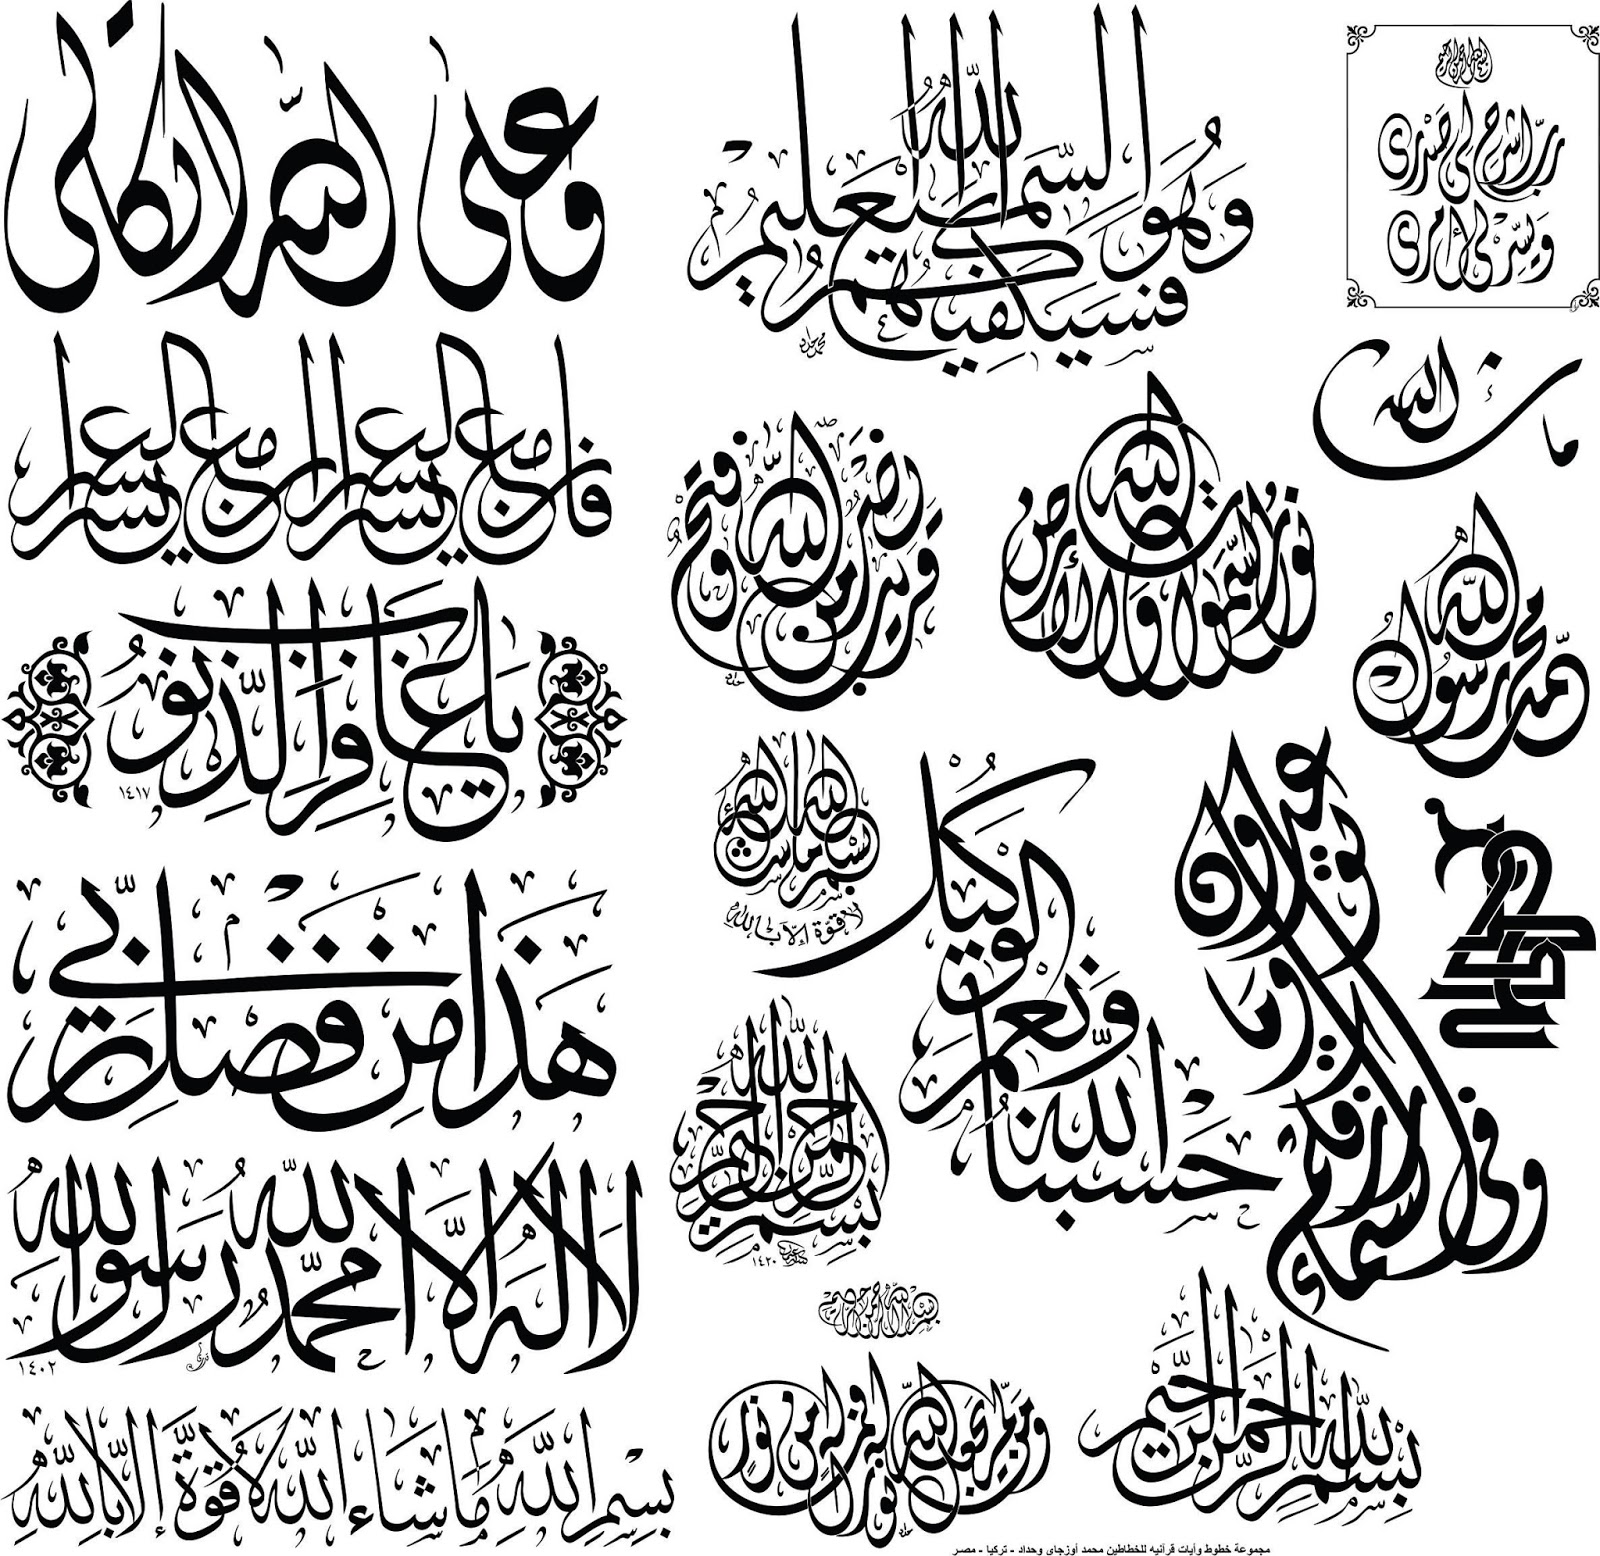 وعلى الله اتكالي
فإن مع العسر يسرا إن مع العسر يسرا
يا غافر الذنوب
١٤١٧
هَذَا مِن فَضْلِ رَبِّي
لا إله إلا الله محمد رسول الله
١٤٠٢
بِسْمِ اللَّهِ مَا شَاءَ اللَّه لَا قُوَّةَ إِلَّا بِاللَّهِ
فسيكفيكهم الله وهو السميع العليم
محمد حداد
نصر من الله وفتح قريب
حداد
الله نور السموات والأرض
بسم الله ما شاء الله
لا قوة إلا بالله
حسبنا الله ونعم الوكيل
بسم الله الرحمن الرحيم
١٤٢٠
بسم الله الرحمن الرحيم
ومن لم يجعل الله له نورا فما له من نور
حداد
بسم الله الرحمن الرحيم
رب اشرح لي صدري
ويسر لي أمري
ما شاء الله
محمد رسول الله
وفي السماء رزقكم وما توعدون
بسم الله الرحمن الرحيم
مجموعة خطوط وأيات قرآنيه للخطاطين محمد أوزجاى وحداد - تركيا - مصر